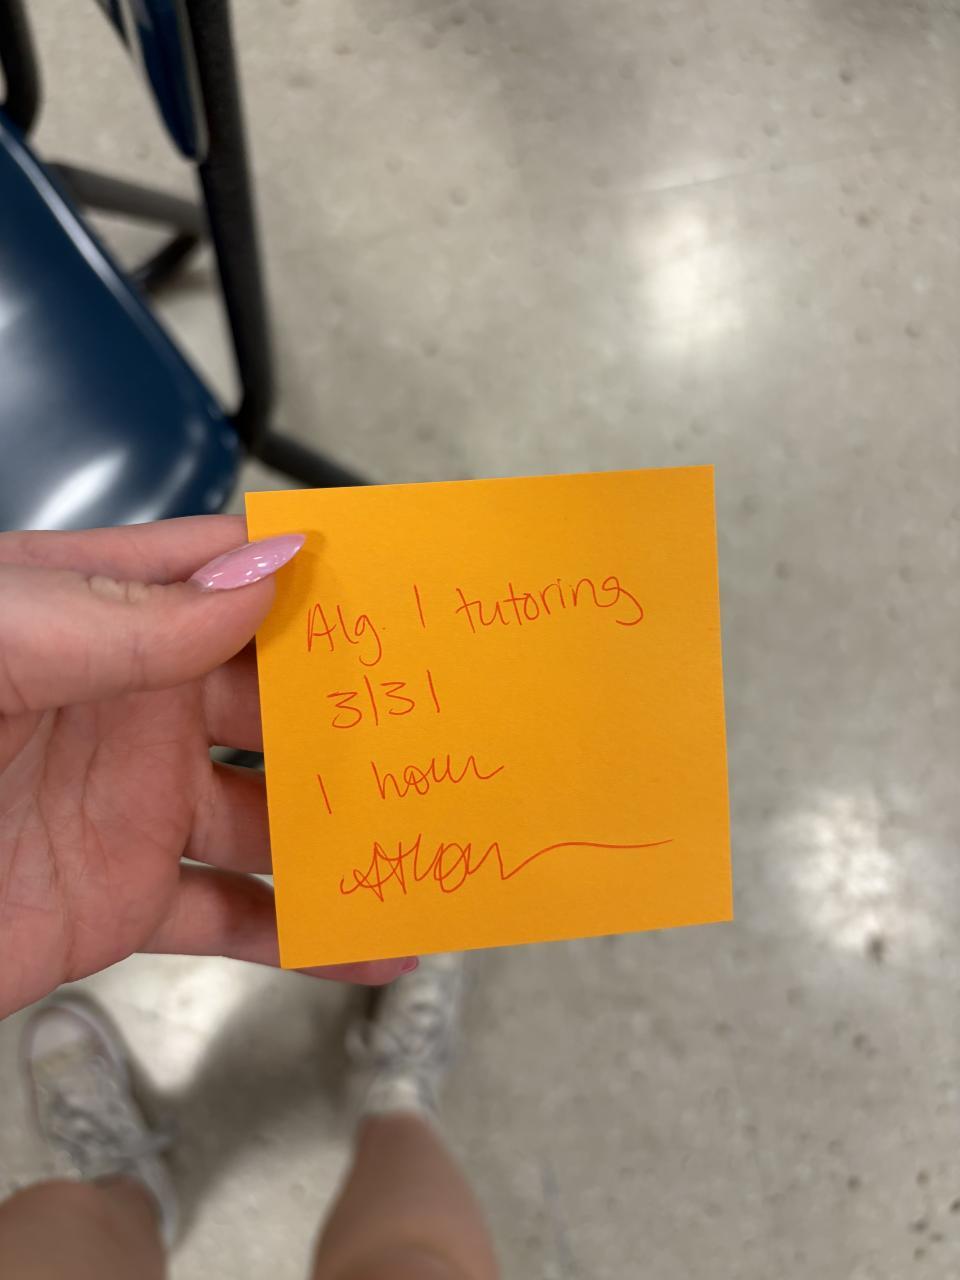 Alg. 1 tutoring
3/31
1 hour